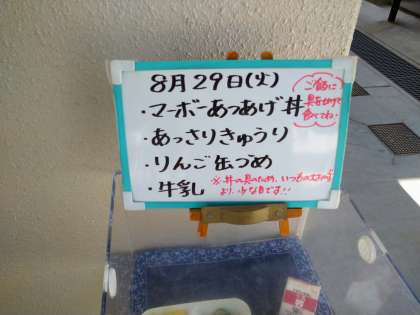 8月29日(火)
・マーボーあつあげ丼
ご飯に
具をかけて
食べてね♡
・あっさりきゅうり
・りんご缶づめ
・牛乳
※丼の具のため、いつもの
より、少な目です!!